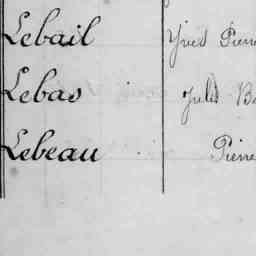 Lebail Yves Pierre
Lebas Jules
Lebeau Pierre